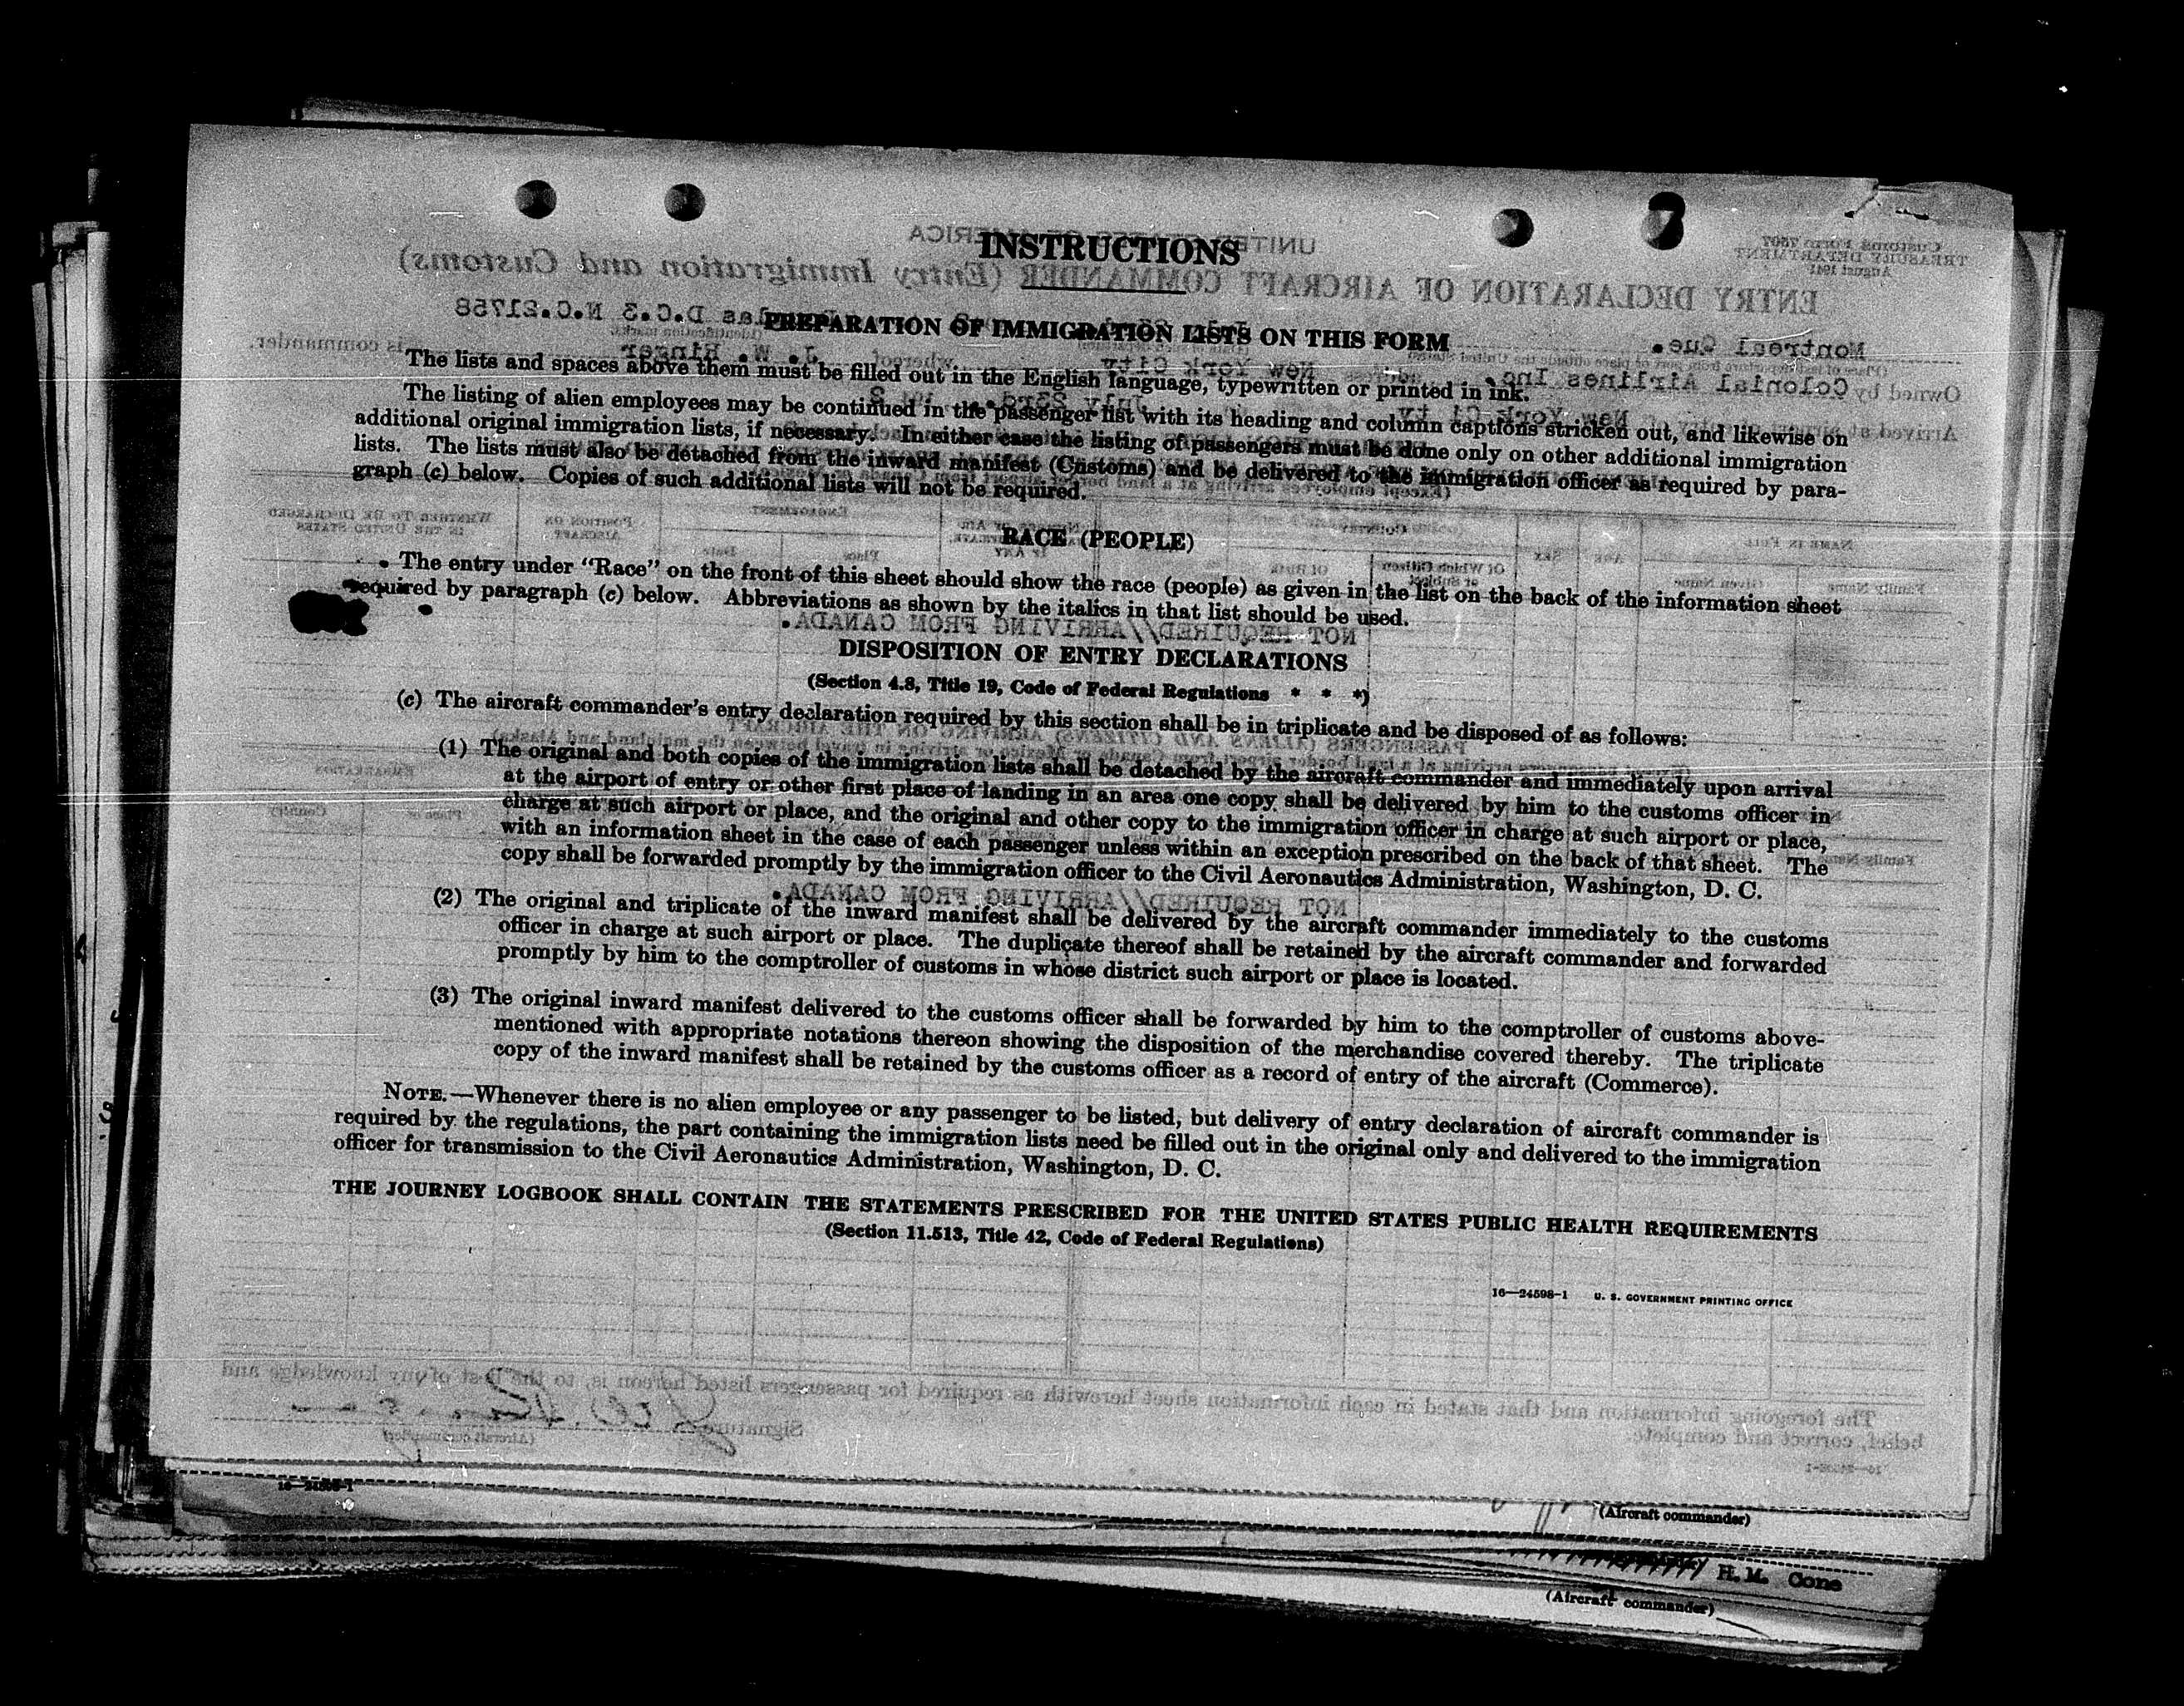 INSTRUCTIONS
PREPARATION OF IMMIGRATION LISTS ON THIS FORM
The lists and spaces above them must be filled out in the English language, typewritten or printed in ink.
The listing of alien employees may be continued in the passenger list with its heading and column captions stricken out, and likewise on
additional original immigration lists, if necessary. In either case the listing of passengers must be done only on other additional immigration
lists. The lists must also be detached from the inward manifest (Customs) and be delivered to the immigration officer as required by para-
graph (c) below. Copies of such additional lists will not be required.
RACE (PEOPLE)
The entry under "Race" on the front of this sheet should show the race (people) as given in the list on the back of the information sheet
required by paragraph (c) below. Abbreviations as shown by the italics in that list should be used.
DISPOSITION OF ENTRY DECLARATIONS
(Section 4.8, Title 19, Code of Federal Regulations * * *)
(c) The aircraft commander's entry declaration required by this section shall be in triplicate and be disposed of as follows:
(1) The original and both copies of the immigration lists shall be detached by the aircraft commander and immediately upon arrival
at the airport of entry or other first place of landing in an area one copy shall be delivered by him to the customs officer in
charge at such airport or place, and the original and other copy to the immigration officer in charge at such airport or place,
with an information sheet in the case of each passenger unless within an exception prescribed on the back of that sheet. The
copy shall be forwarded promptly by the immigration officer to the Civil Aeronautics Administration, Washington, D. C.
(2) The original and triplicate of the inward manifest shall be delivered by the aircraft commander immediately to the customs
officer in charge at such airport or place. The duplicate thereof shall be retained by the aircraft commander and forwarded
promptly by him to the comptroller of customs in whose district such airport or place is located.
(3) The original inward manifest delivered to the customs officer shall be forwarded by him to the comptroller of customs above-
mentioned with appropriate notations thereon showing the disposition of the merchandise covered thereby. The triplicate
copy of the inward manifest shall be retained by the customs officer as a record of entry of the aircraft (Commerce).
NOTE.—Whenever there is no alien employee or any passenger to be listed, but delivery of entry declaration of aircraft commander is
required by the regulations, the part containing the immigration lists need be filled out in the original only and delivered to the immigration
officer for transmission to the Civil Aeronautics Administration, Washington, D. C.
THE JOURNEY LOGBOOK SHALL CONTAIN THE STATEMENTS PRESCRIBED FOR THE UNITED STATES PUBLIC HEALTH REQUIREMENTS
(Section 11.513, Title 42, Code of Federal Regulations)
16—24598-1 U. S. GOVERNMENT PRINTING OFFICE
16—24598-1
(Aircraft commander)
H. M. Cone
(Aircraft commander)